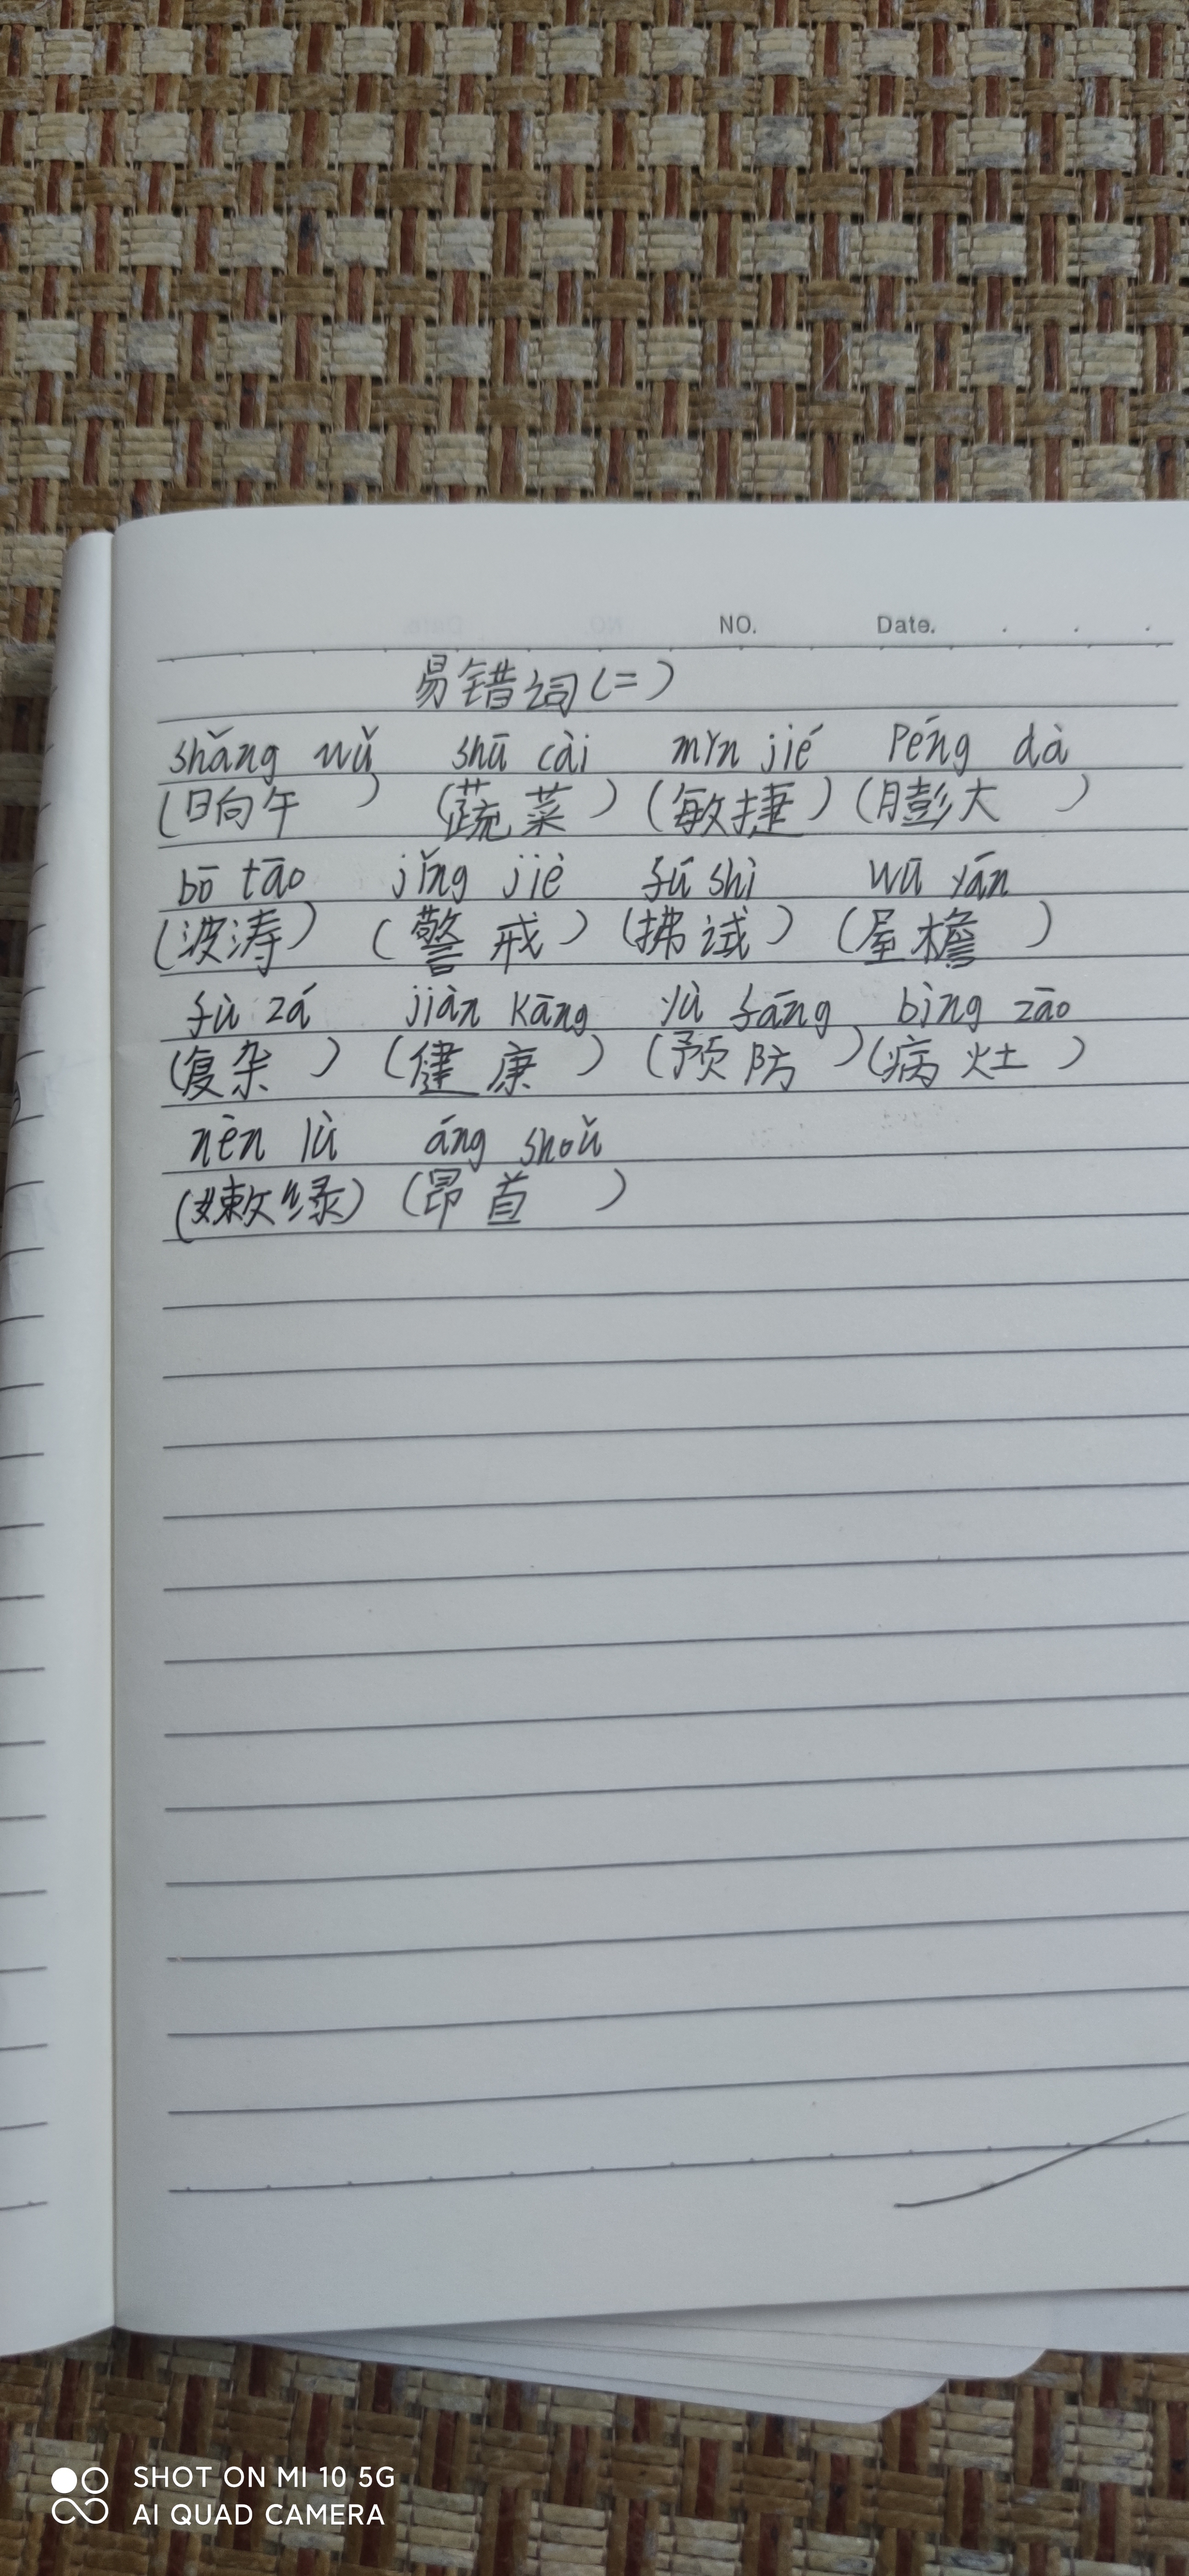 NO. Date.
易错词(二)
shǎng wǔ shū cài mǐn jié péng dà
(晌午 ) (蔬菜) (敏捷) (膨大 )
bō tāo jǐng jiè fú shì wū yán
(波涛) (警戒) (拂试) (屋檐 )
fù zá jiàn kāng yù fáng bìng zāo
(复杂 ) (健康 ) (预防 ) (病灶 )
nèn lǜ áng shoǔ
(嫩绿) (昂首 )
SHOT ON MI 10 5G
AI QUAD CAMERA